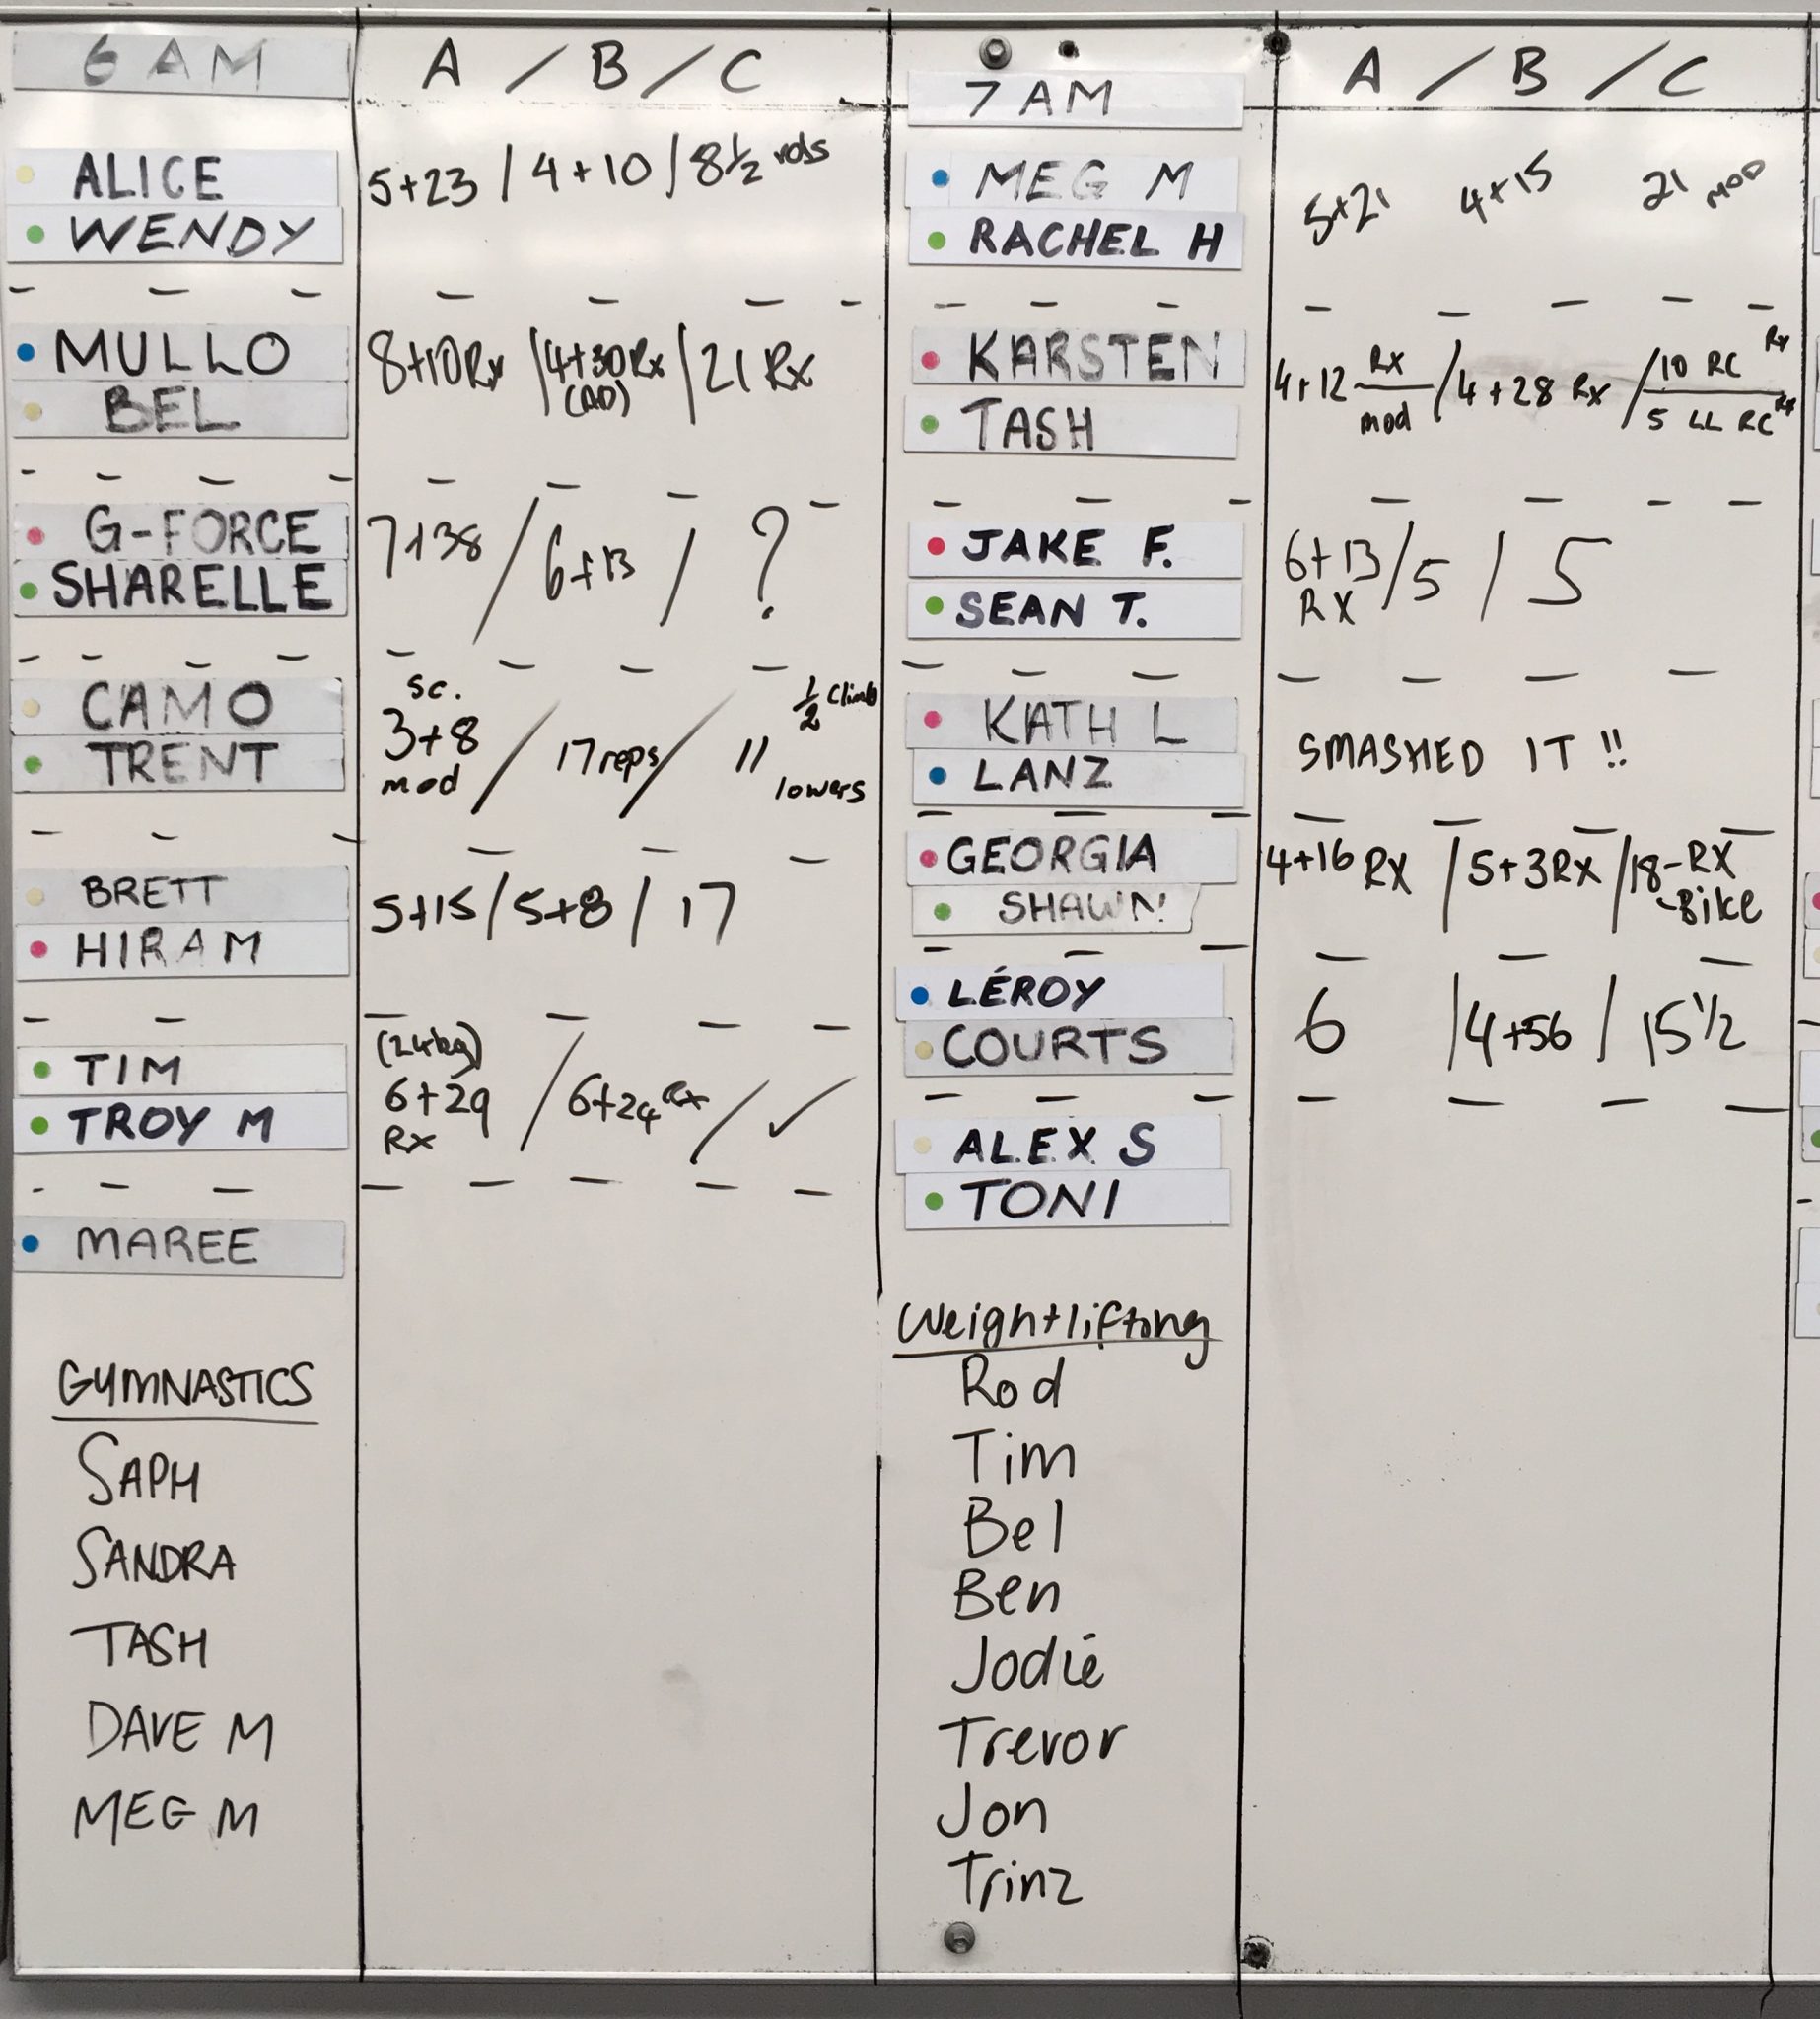 6 AM
A / B / C
ALICE
WENDY
5+23 / 4+10 / 8 1/2 rds
MULLO
BEL
8+10 Rx / 4+30 Rx / 21 Rx
G-FORCE
SHARELLE
7+38 / 6+13 / ?
CAMO
TRENT
sc.
3+8
mod / 17 reps / 11
1/2 climb
lowers
BRETT
HIRAM
5+15 / 5+8 / 17
TIM
TROY M
(24kg)
6+29 / 6+24 Rx / ✓
Rx
MAREE
GYMNASTICS
SAPH
SANDRA
TASH
DAVE M
MEG M
7 AM
A / B / C
MEG M
RACHEL H
5+21 4+15 21 MOD
KARSTEN
TASH
4+12 Rx / 4+28 Rx / 10 RC Rx
mod
5 LL RC Rx
JAKE F.
SEAN T.
6+13 / 5 / 5
RX
KATH L
LANZ
SMASHED IT !!
GEORGIA
SHAWN
4+16 RX / 5+3 RX / 18 - RX
- Bike
LÉROY
COURTS
6 / 4+56 / 15 1/2
ALEX S
TONI
Weightlifting
Rod
Tim
Bel
Ben
Jodie
Trevor
Jon
Trinz